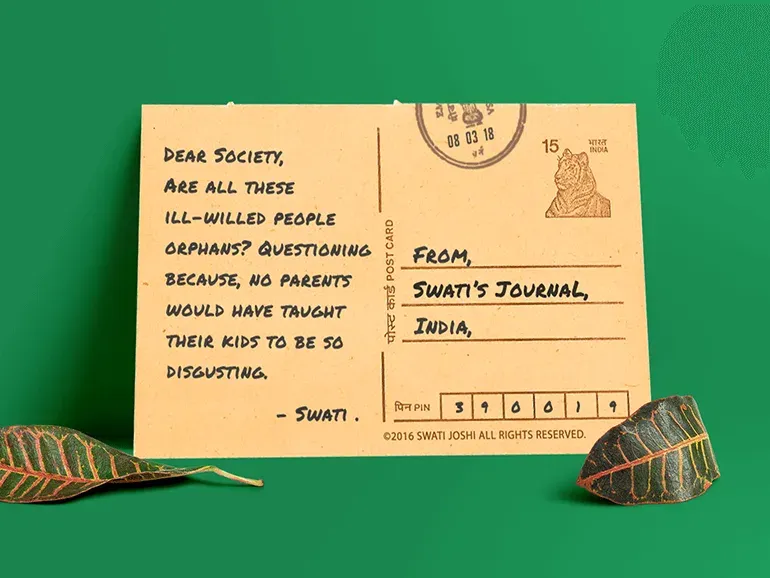 DEAR SOCIETY,
ARE ALL THESE
ILL-WILLED PEOPLE
ORPHANS? QUESTIONING
BECAUSE, NO PARENTS
WOULD HAVE TAUGHT
THEIR KIDS TO BE SO
DISGUSTING.
- SWATI .
पोस्ट कार्ड POST CARD
08 03 18
15 भारत
INDIA
FROM,
SWATI'S JOURNAL,
INDIA,
पिन PIN 3 9 0 0 1 9
©2016 SWATI JOSHI ALL RIGHTS RESERVED.